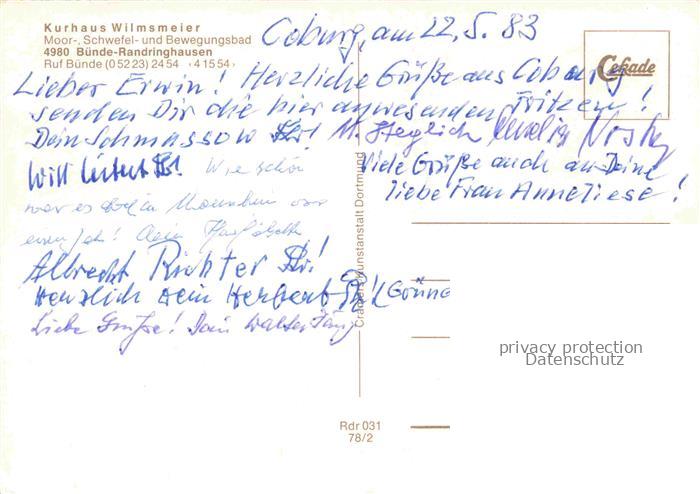 Kurhaus Wilmsmeier
Moor-, Schwefel- und Bewegungsbad
4980 Bünde-Randringhausen
Ruf Bünde (0 52 23) 24 54 ‹ 4 15 54 ›
Cekade
Coburg, am 22.5.83
Lieber Erwin! Herzliche Grüße aus Coburg
senden Dir die hier anwesenden Fritzen!
Dein Schmassow
Viele Grüße auch an Deine
liebe Frau Anneliese!
Wie schön
war es doch in München vor
einem Jahr! Dein
Albrecht Richter
Herzlich Dein Herbert
Liebe Grüße! Dein Walter
Cramers Kunstanstalt Dortmund
privacy protection
Datenschutz
Rdr 031
78/2